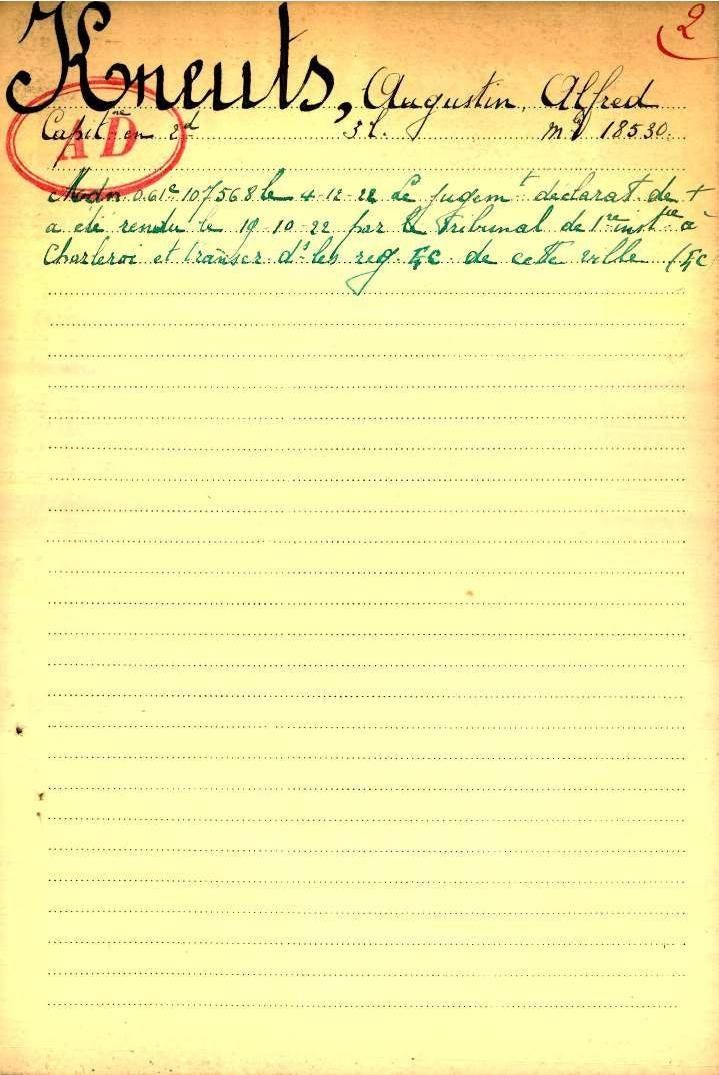 2
Kneuts, Augustin, Alfred
Capit.ne en 2d 3 l. mle 18530.
AD
Mdn 061c 107568 le 4-12-22 Le jugemt déclarat. de +
a été rendu le 19-10-22 par le Tribunal de 1re instce à
Charleroi et transcr. ds les reg. EC de cette ville (EC